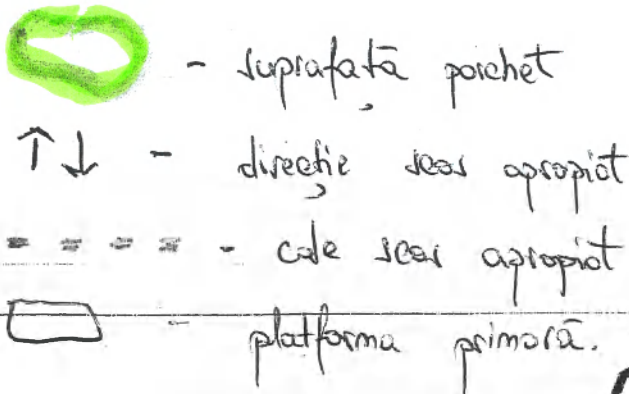 - suprafață parchet
↑↓ - direcție scos apropiat
- cale scos apropiat
- platforma primară.